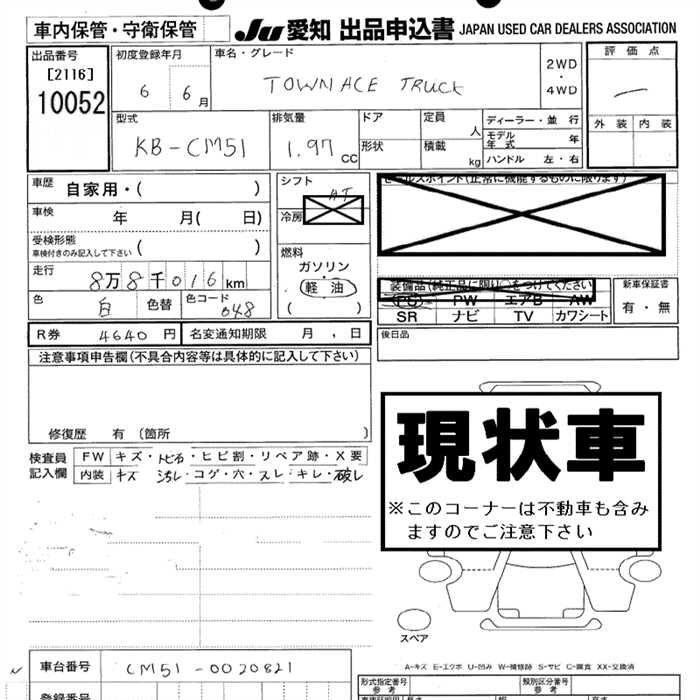 車内保管・守衛保管
JU 愛知 出品申込書 JAPAN USED CAR DEALERS ASSOCIATION
出品番号
[2116]
10052
初度登録年月
6 6月
車名・グレード
TOWN ACE TRUCK
2WD
・
4WD
評価点
外装 内装
型式
KB-CM51
排気量
1.97 CC
ドア
形状
定員 人
積載 kg
ディーラー・並行
モデル年式 年
ハンドル 左・右
車歴 自家用・( )
車検 年 月( 日)
受検形態
車検付きのみ記入して下さい ( )
走行 8万8千016km
色 白 色替 色コード 048
シフト AT
冷房
燃料
ガソリン・
軽油
( )
セールスポイント(正常に機能するものに限ります)
装備品(純正品に限り○をつけてください)
PS PW エアB AW
SR ナビ TV カワシート
新車保証書
有・無
R券 4640円 名変通知期限 月, 日
後日品
注意事項申告欄(不具合内容等は具体的に記入して下さい)
修復歴 有 (箇所 )
検査員記入欄
FW キズ・トビ石・ヒビ割・リペア跡・X要
内装 キズ 汚れ・コゲ・穴・スレ・キレ・破れ
現状車
※このコーナーは不動車も含み
ますのでご注意下さい
スペア
A-キズ E-エクボ U-凹み W-補修跡 S-サビ C-腐食 XX-交換済
車台番号 CM51-0020821
登録番号
形式指定番号
参考
類別区分番号
参考